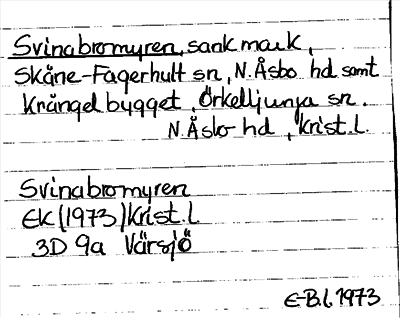 Svinabromyren, sank mark,
Skåne-Fagerhult sn, N. Åsbo hd samt
Krångelbygget, Örkelljunga sn.
N. Åsbo hd, Krist. l.
Svinabromyren
EK (1973) Krist. l
3D 9a Värsjö
E-B.l. 1973